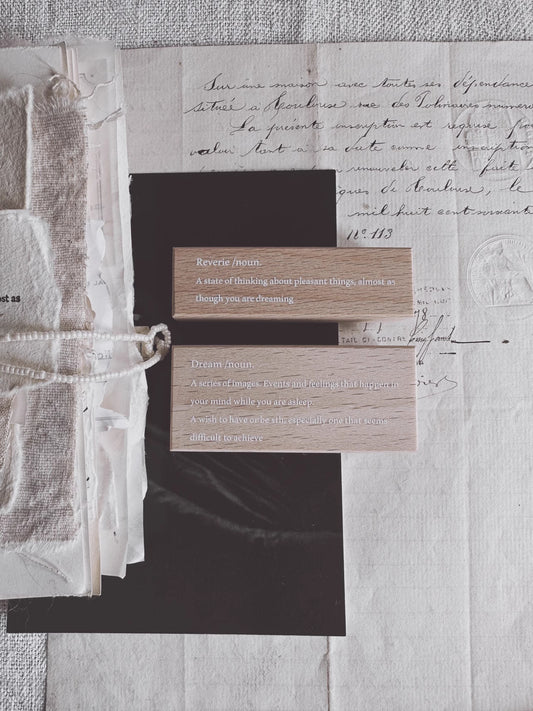 Sur une maison avec toutes ses dépendance
située a Toulouse rue des Polinaires numéro
La présente inscription est requise pour
valoir tant a sa date comme inscription
renouveler cette
de Toulouse, le
mil huit cent soixante
N°. 113
Reverie /noun.
A state of thinking about pleasant things, almost as
though you are dreaming
st as
78
Dream /noun.
A series of images. Events and feelings that happen in
your mind while you are asleep.
A wish to have or be sth, especially one that seems
difficult to achieve